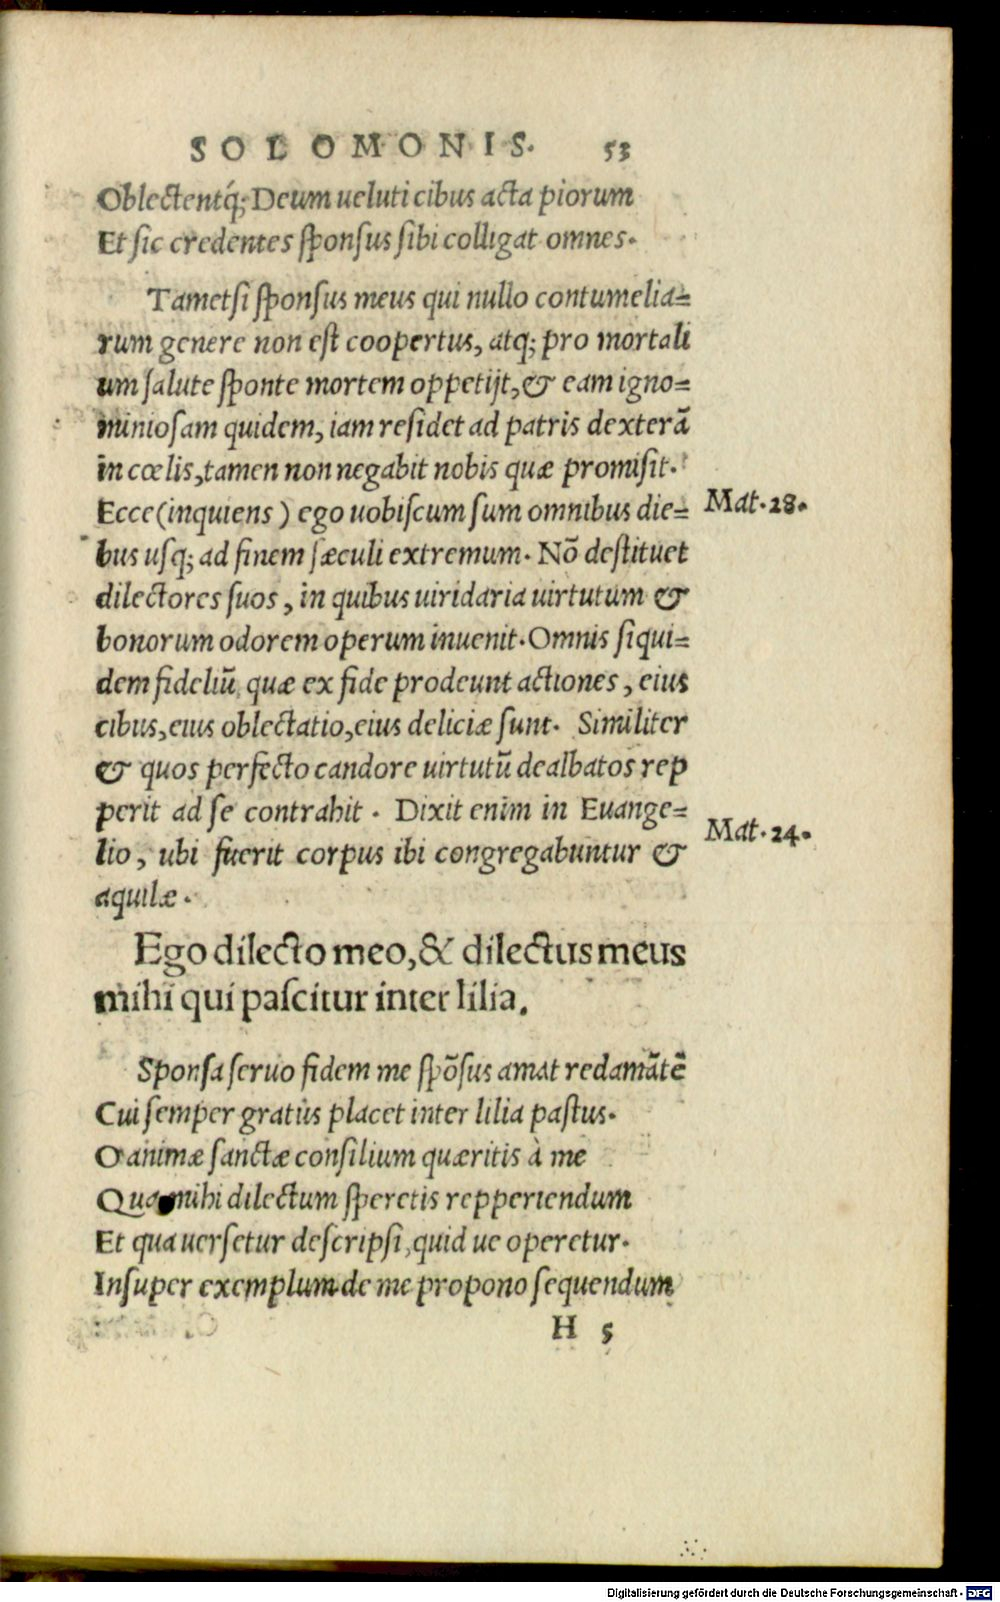 SOLOMONIS. 53
Oblectentq́; Deum ueluti cibus acta piorum
Et sic credentes sponsus sibi colligat omnes.
Tametsi sponsus meus qui nullo contumelia=
rum genere non est coopertus, atq; pro mortali
um salute sponte mortem oppetijt, & eam igno=
miniosam quidem, iam residet ad patris dexterā
in cœlis, tamen non negabit nobis quæ promisit.
Ecce (inquiens) ego uobiscum sum omnibus die= Mat. 28.
bus usq; ad finem sæculi extremum. Nō destituet
dilectores suos, in quibus uiridaria uirtutum &
bonorum odorem operum inuenit. Omnis siqui=
dem fideliū quæ ex fide prodeunt actiones, eius
cibus, eius oblectatio, eius deliciæ sunt. Similiter
& quos perfecto candore uirtutū dealbatos rep
perit ad se contrahit. Dixit enim in Euange=
lio, ubi fuerit corpus ibi congregabuntur & Mat. 24.
aquilæ.
Ego dilecto meo, & dilectus meus
mihi qui pascitur inter lilia.
Sponsa seruo fidem me spōsus amat redamātē
Cui semper gratus placet inter lilia pastus.
O animæ sanctæ consilium quæritis à me
Qua mihi dilectum speretis repperiendum
Et qua uersetur descripsi, quid ue operetur.
Insuper exemplum de me propono sequendum
H 5
Digitalisierung gefördert durch die Deutsche Forschungsgemeinschaft - DFG